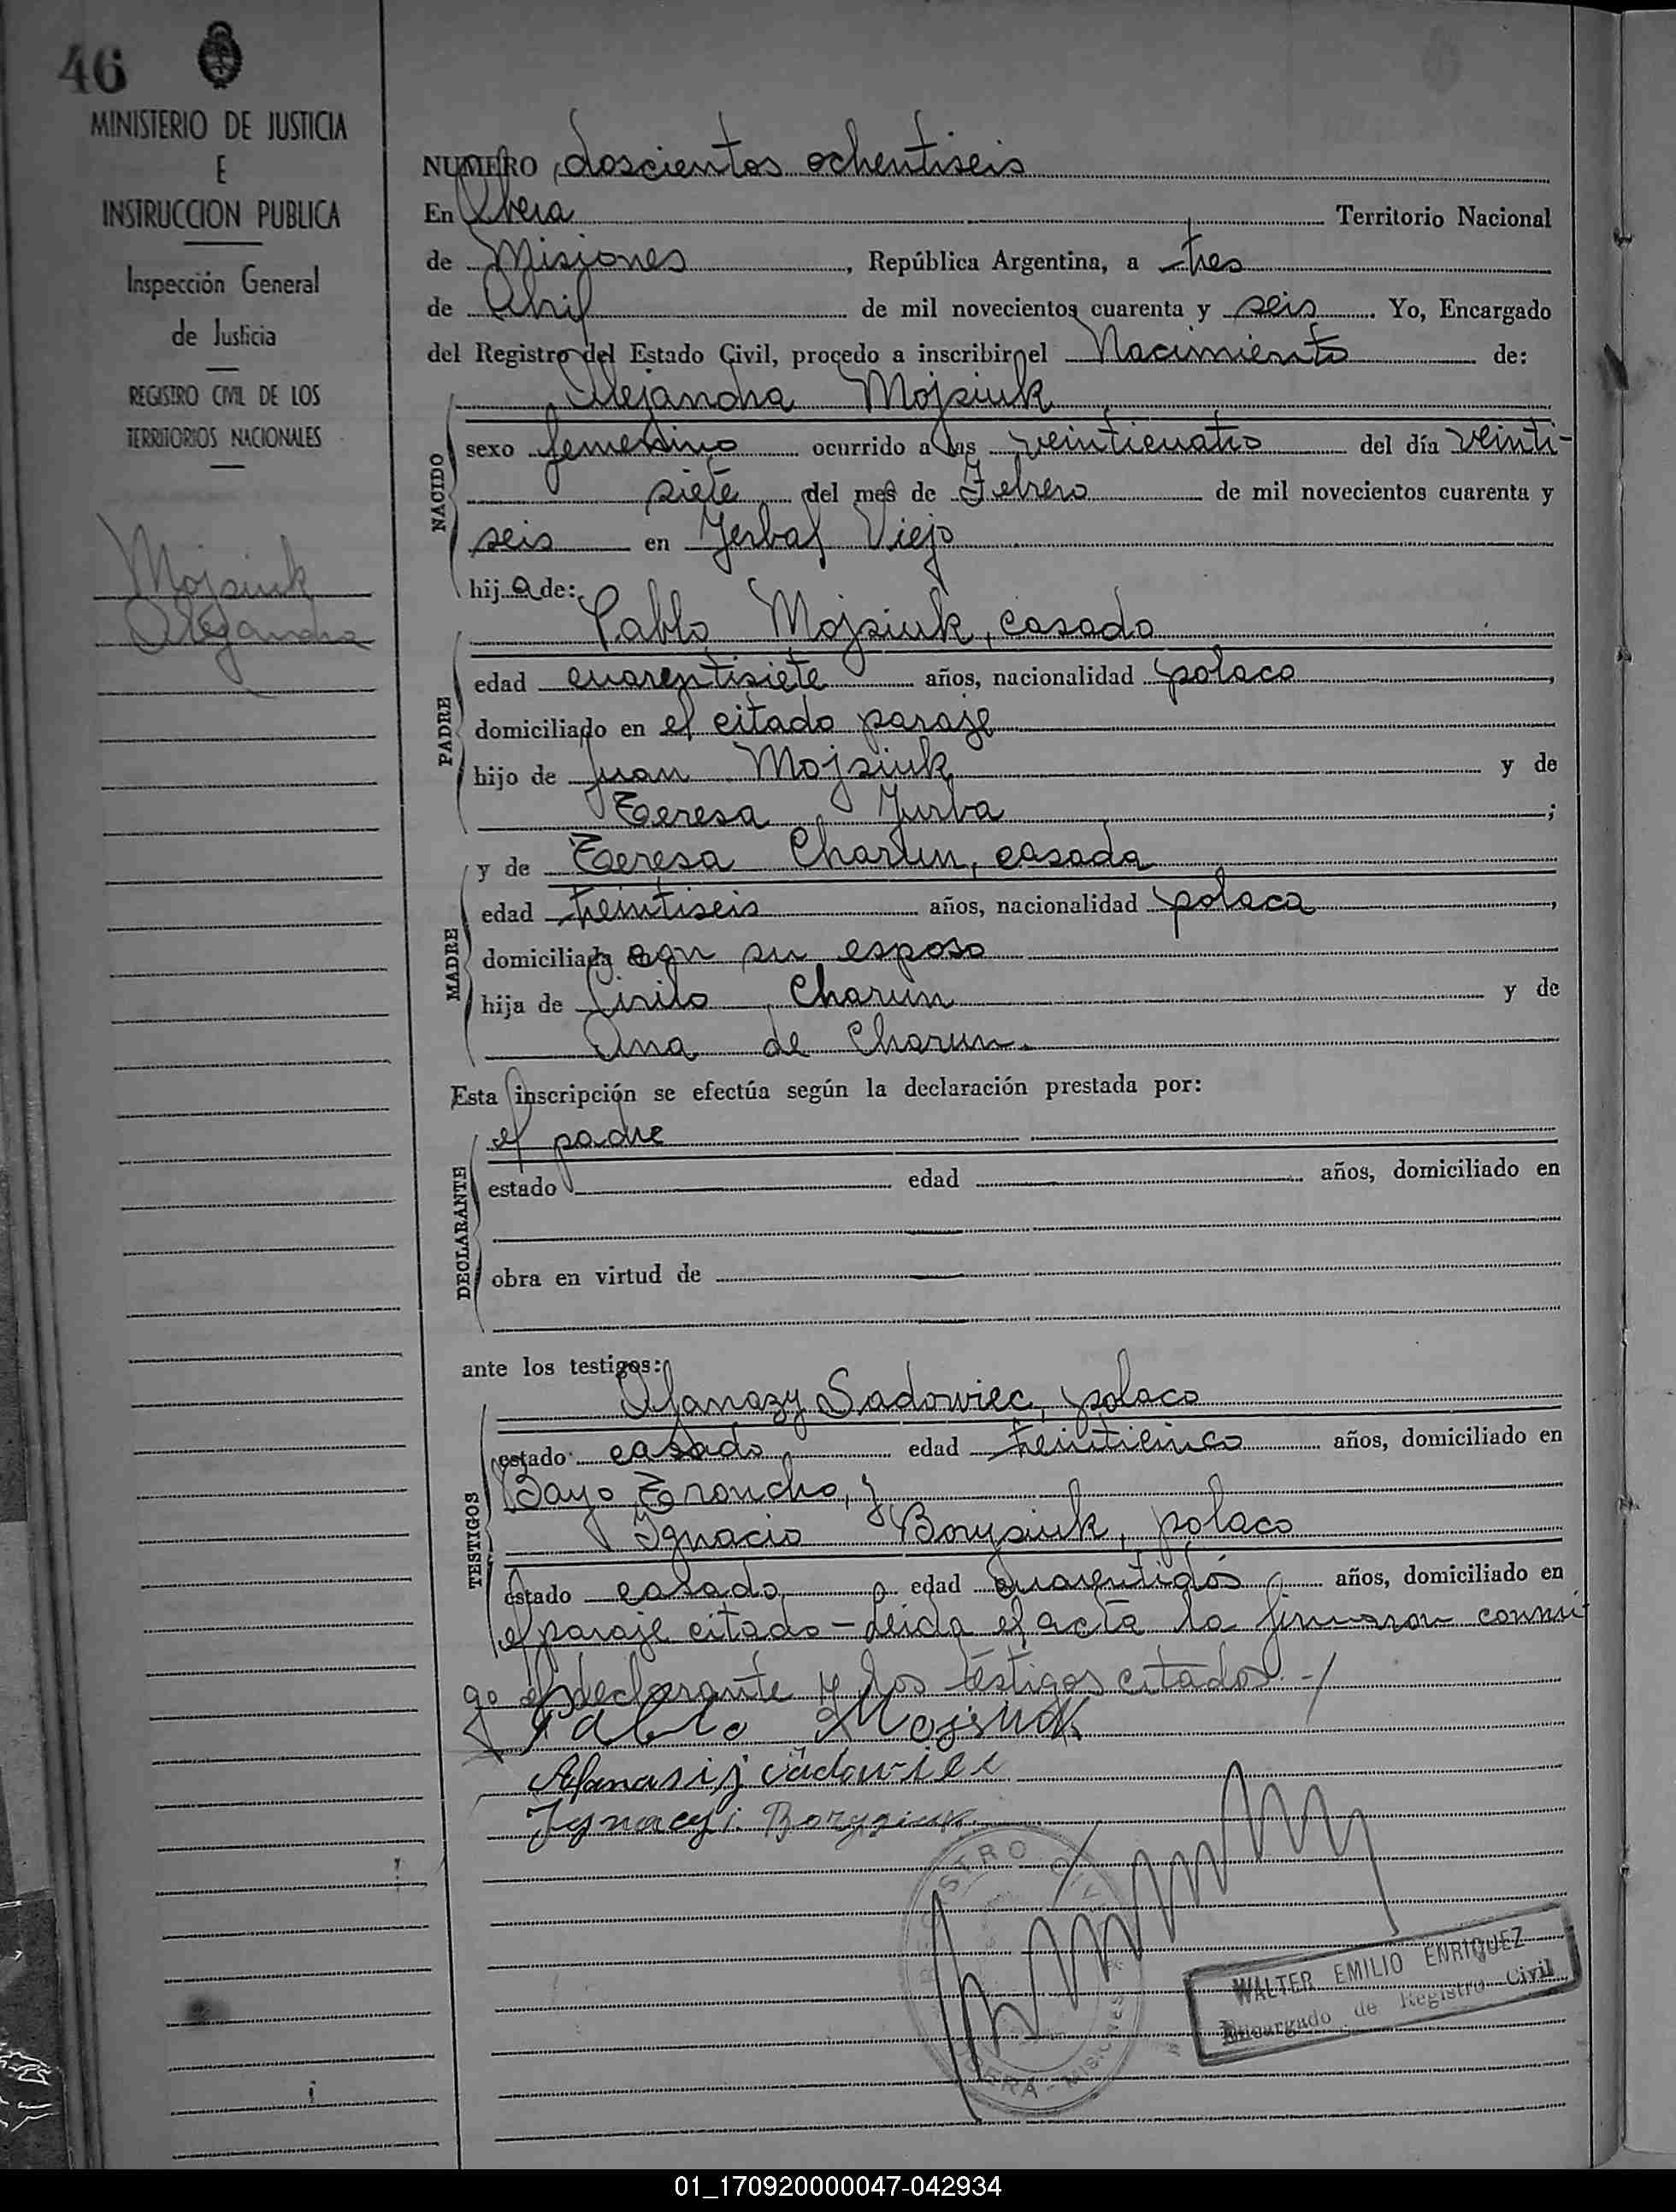 46
MINISTERIO DE JUSTICIA
E
INSTRUCCION PUBLICA
Inspección General
de Justicia
REGISTRO CIVIL DE LOS
TERRITORIOS NACIONALES
Mojsiuk
Alejandra
NUMERO doscientos ochentiseis
En Obera Territorio Nacional
de Misiones, República Argentina, a tres
de Abril de mil novecientos cuarenta y seis. Yo, Encargado
del Registro del Estado Civil, procedo a inscribir el Nacimiento de:
Alejandra Mojsiuk
NACIDO
sexo femenino ocurrido a las veinticuatro del día veinti-
siete del mes de Febrero de mil novecientos cuarenta y
seis en Yerbal Viejo
hija de:
Pablo Mojsiuk, casado
PADRE
edad cuarentisiete años, nacionalidad polaco,
domiciliado en el citado paraje
hijo de Juan Mojsiuk y de
Teresa Jurba;
y de Teresa Charun, casada
MADRE
edad treintiseis años, nacionalidad polaca,
domiciliada con su esposo
hija de Cirilo Charun y de
Ana de Charun.
Esta inscripción se efectúa según la declaración prestada por:
el padre
DECLARANTE
estado edad años, domiciliado en
obra en virtud de
ante los testigos:
Afanazy Sadowiec, polaco
TESTIGOS
estado casado edad treinticinco años, domiciliado en
Bayo Troncho, y
Ignacio Borysiuk, polaco
estado casado edad cuarentidós años, domiciliado en
el paraje citado - Leida el acta la firmaron conmi
go el declarante y los testigos citados.-
Pablo Mojsiuk
Afanasij Sadowiec
Ignacy Borysiuk
REGISTRO CIVIL
OBERA - MISIONES
WALTER EMILIO ENRIQUEZ
Encargado de Registro Civil
01_170920000047-042934